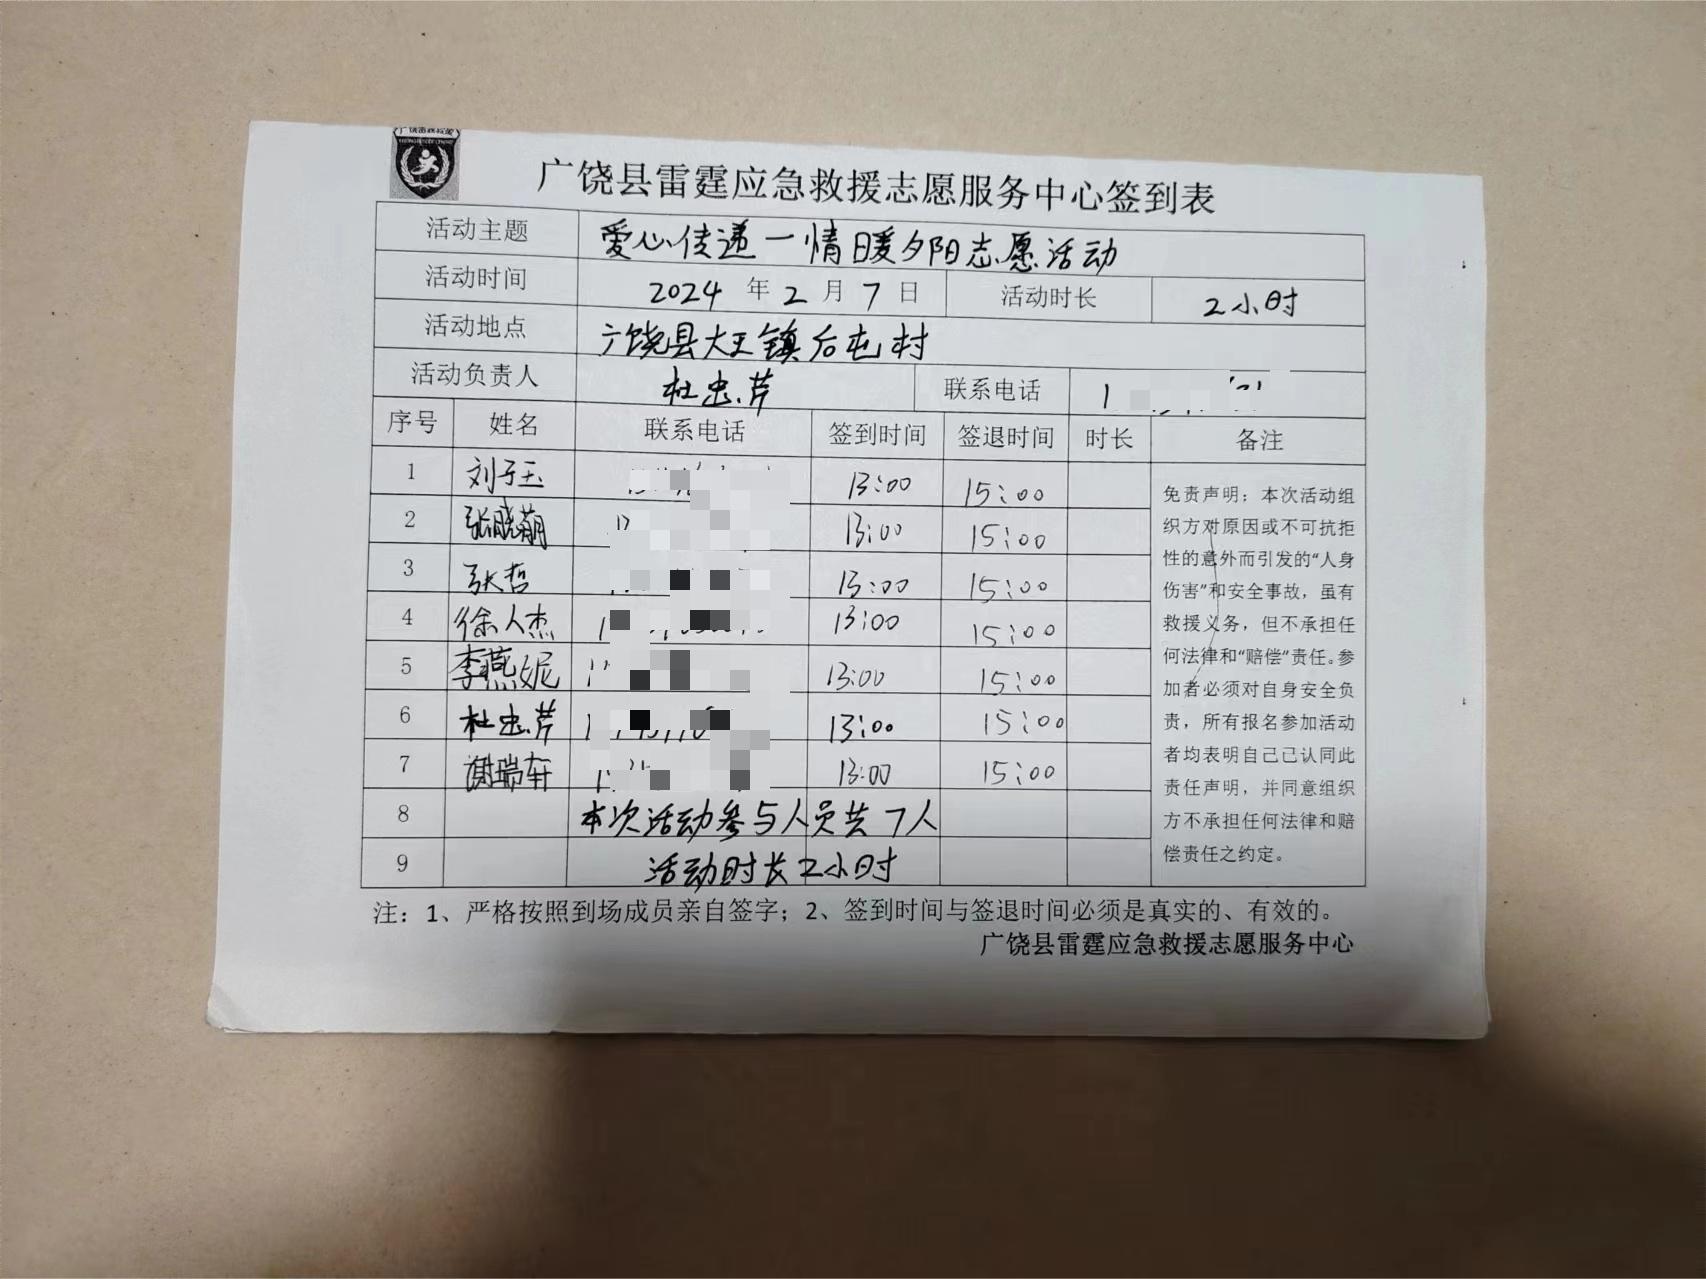 广饶雷霆救援
广饶县雷霆应急救援志愿服务中心签到表
活动主题 爱心传递一情暖夕阳志愿活动
活动时间 2024 年 2 月 7 日 活动时长 2小时
活动地点 广饶县大王镇后屯村
活动负责人 杜忠芹 联系电话 1
序号 姓名 联系电话 签到时间 签退时间 时长 备注
1 刘子玉 13:00 15:00
2 张晓萌 13:00 15:00
3 张哲 13:00 15:00
4 徐人杰 1 13:00 15:00
5 李燕妮 13:00 15:00
6 杜忠芹 1 13:00 15:00
7 谢瑞轩 1 13:00 15:00
8 本次活动参与人员共7人
9 活动时长2小时
免责声明：本次活动组
织方对原因或不可抗拒
性的意外而引发的“人身
伤害”和安全事故，虽有
救援义务，但不承担任
何法律和“赔偿”责任。参
加者必须对自身安全负
责，所有报名参加活动
者均表明自己已认同此
责任声明，并同意组织
方不承担任何法律和赔
偿责任之约定。
注：1、严格按照到场成员亲自签字；2、签到时间与签退时间必须是真实的、有效的。
广饶县雷霆应急救援志愿服务中心